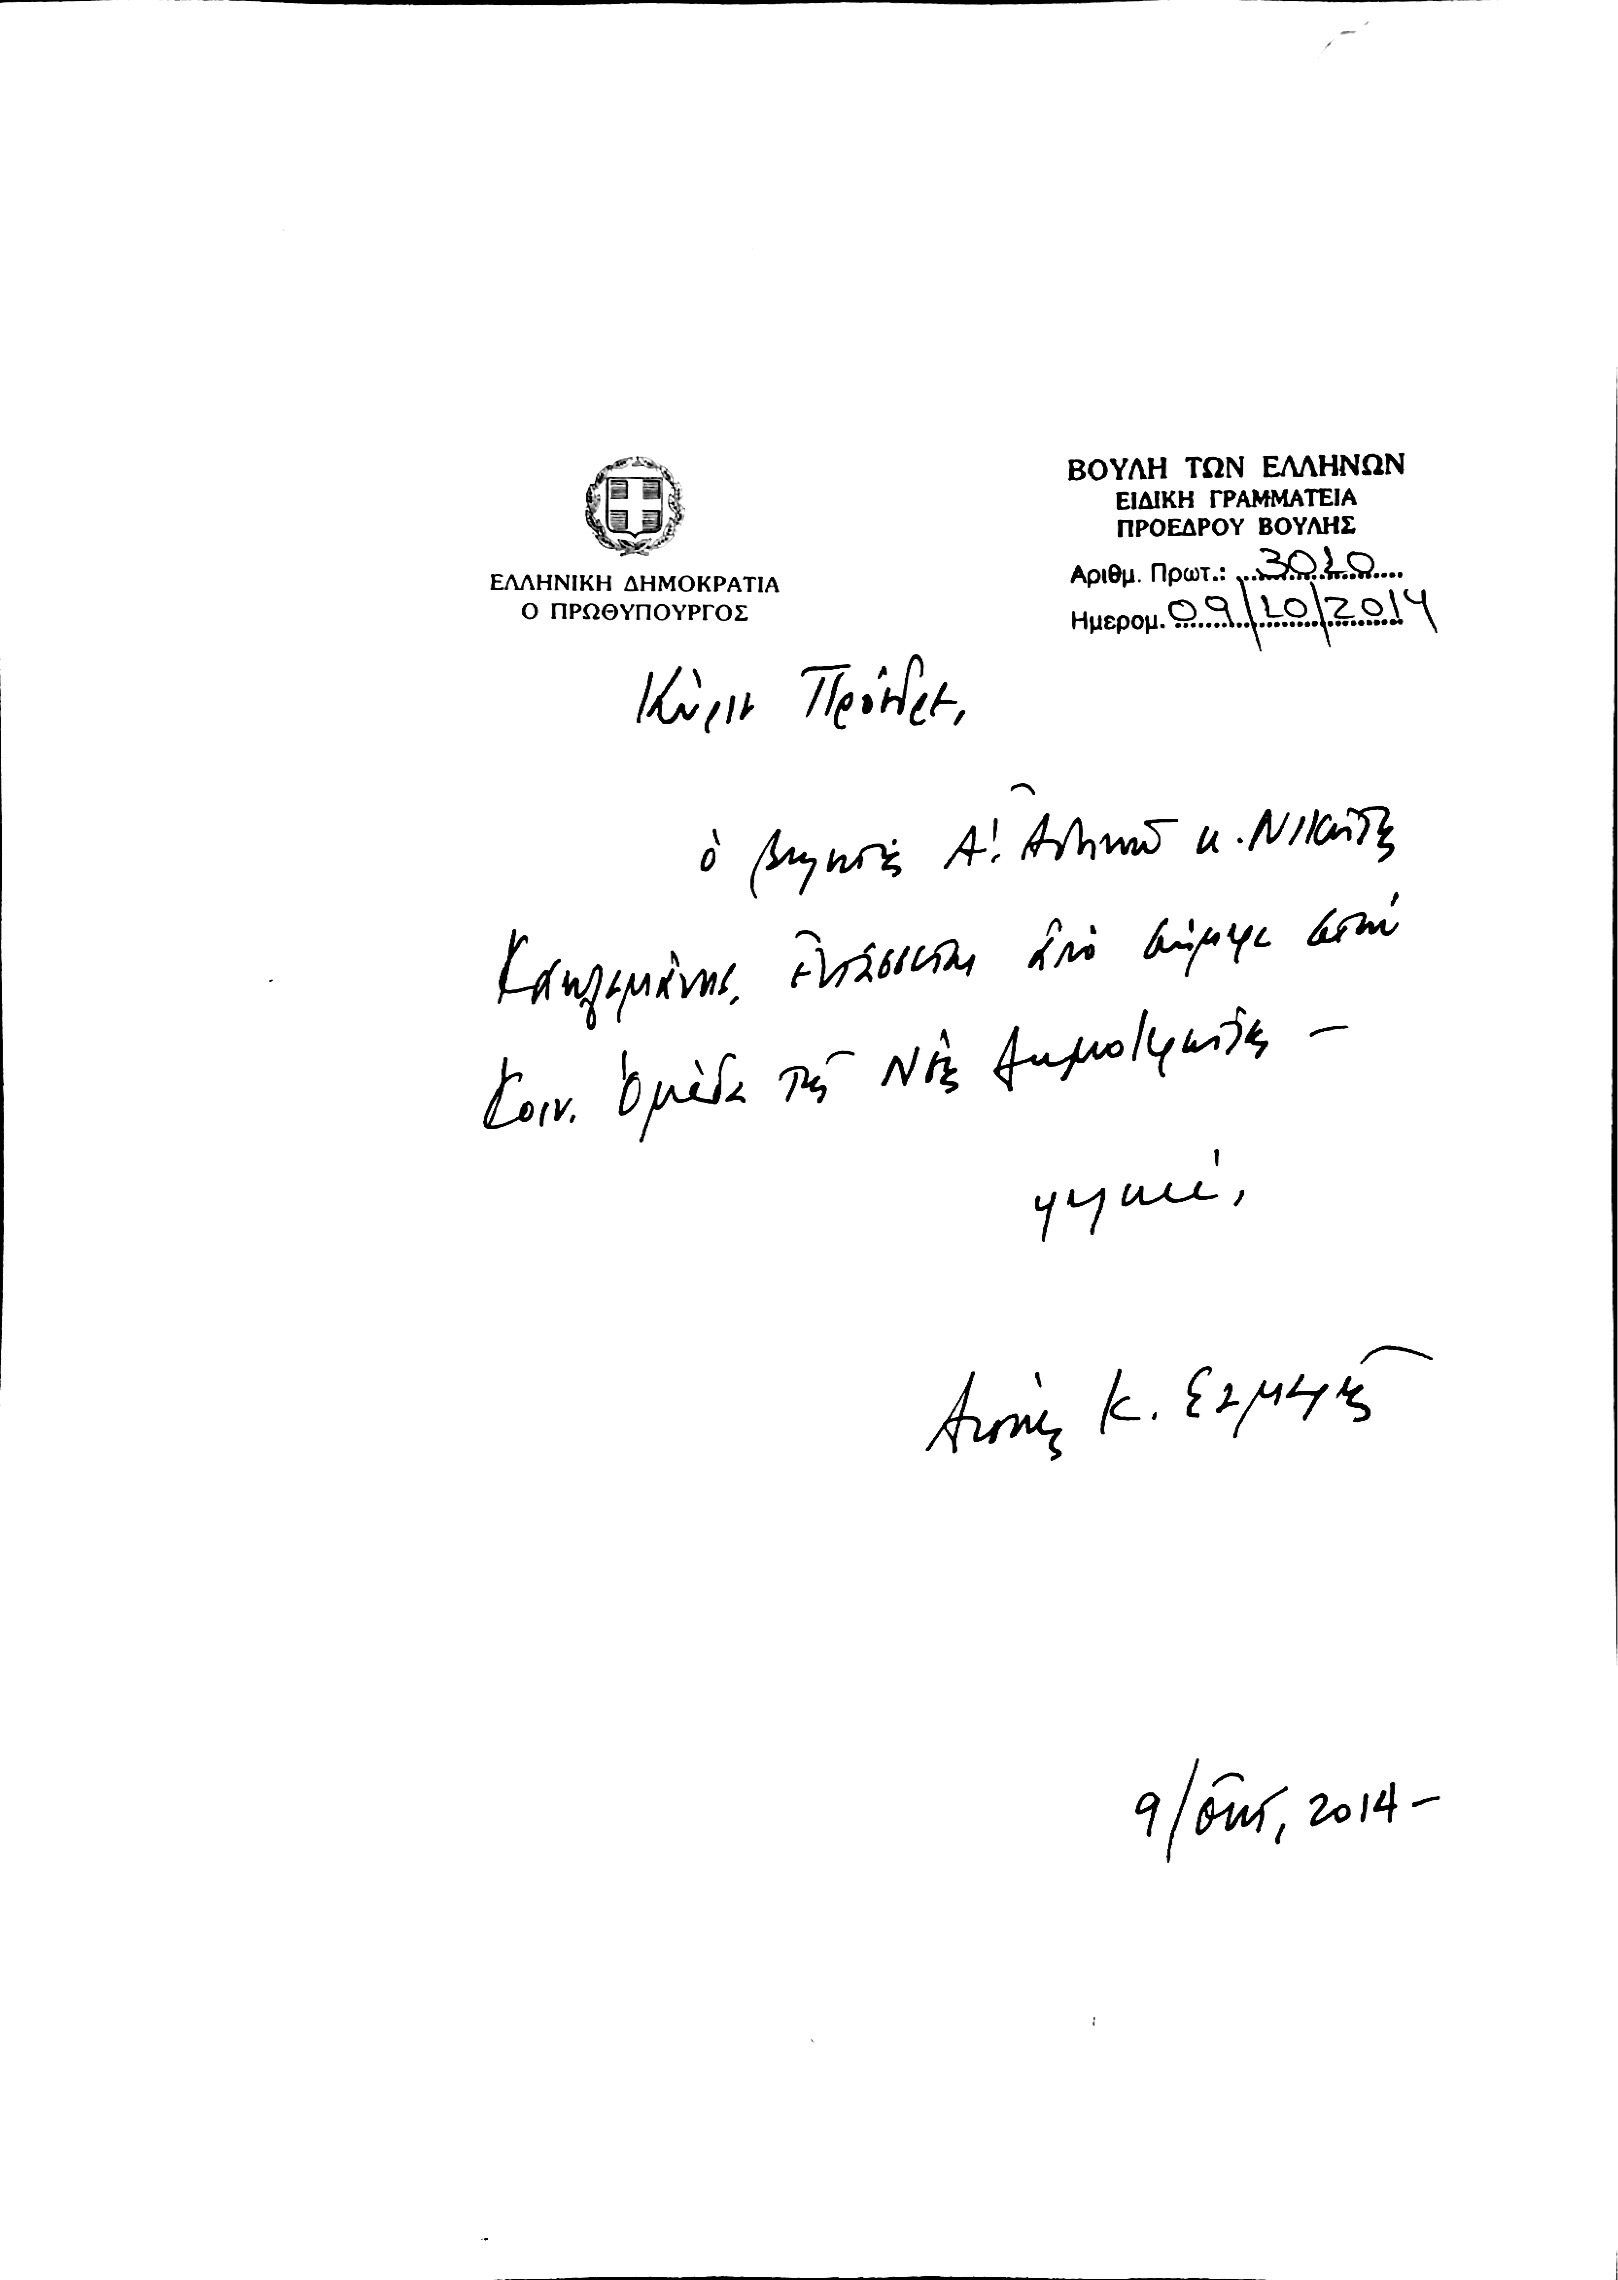 ΕΛΛΗΝΙΚΗ ΔΗΜΟΚΡΑΤΙΑ
Ο ΠΡΩΘΥΠΟΥΡΓΟΣ
ΒΟΥΛΗ ΤΩΝ ΕΛΛΗΝΩΝ
ΕΙΔΙΚΗ ΓΡΑΜΜΑΤΕΙΑ
ΠΡΟΕΔΡΟΥ ΒΟΥΛΗΣ
Αριθμ. Πρωτ.: 3020
Ημερομ. 09/10/2014
Κύριε Πρόεδρε,
ὁ βουλευτής Α'. Ἀθηνῶν κ. Νικήτας
Κακλαμάνης, ἐντάσσεται ἀπό σήμερα στήν
Κοιν. Ὁμάδα τῆς Νέας Δημοκρατίας –
φιλικά,
Ἀντώνης Κ. Σαμαρᾶς
9/Ὀκτ, 2014 –